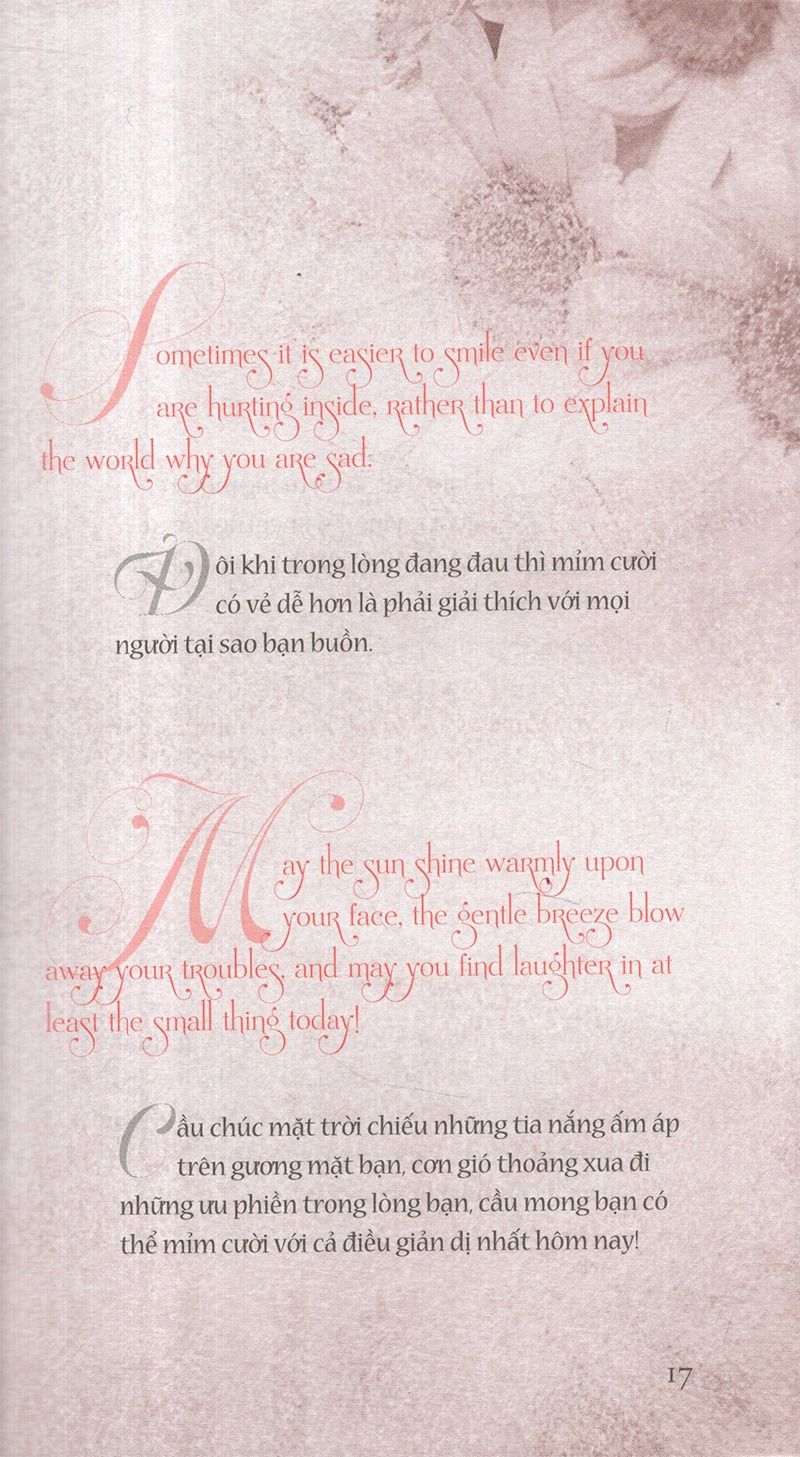 Sometimes it is easier to smile even if you
are hurting inside, rather than to explain
the world why you are sad.
Đôi khi trong lòng đang đau thì mỉm cười
có vẻ dễ hơn là phải giải thích với mọi
người tại sao bạn buồn.
May the sun shine warmly upon
your face, the gentle breeze blow
away your troubles, and may you find laughter in at
least the small thing today!
Cầu chúc mặt trời chiếu những tia nắng ấm áp
trên gương mặt bạn, cơn gió thoảng xua đi
những ưu phiền trong lòng bạn, cầu mong bạn có
thể mỉm cười với cả điều giản dị nhất hôm nay!
17